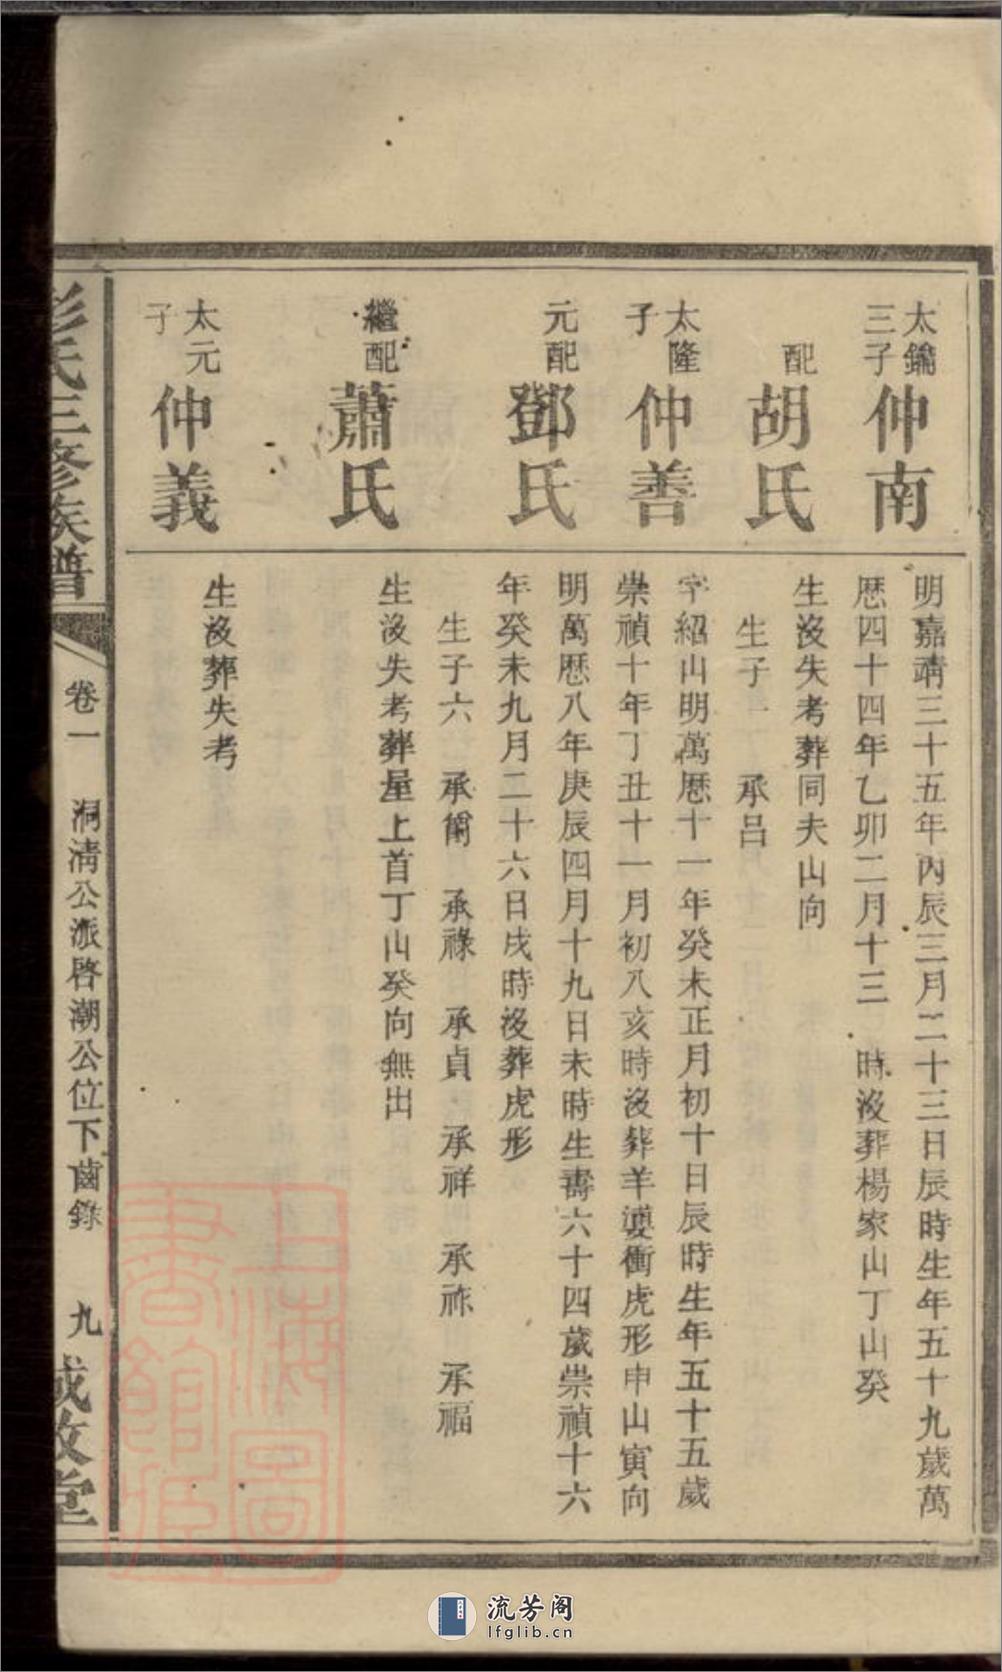 太鑰三子
仲南
明嘉靖三十五年丙辰三月二十三日辰時生年五十九歲萬
歷四十四年乙卯二月十三 時沒葬楊家山丁山癸
配
胡氏
生沒失考葬同夫山向
生子一 承呂
太隆子
仲善
字紹山明萬歷十一年癸未正月初十日辰時生年五十五歲
崇禎十年丁丑十一月初八亥時沒葬羊 衝虎形申山寅向
元配
鄧氏
明萬歷八年庚辰四月十九日未時生壽六十四歲崇禎十六
年癸未九月二十六日戌時沒葬虎形
生子六 承 承祿 承貞 承祥 承祚 承福
繼配
蕭氏
生沒失考葬屋上首丁山癸向無出
太元子
仲義
生沒葬失考
彭氏三修族譜
卷一 洞清公派啓潮公位下齒錄 九
上海圖書館藏
流芳阁
lfglib.cn